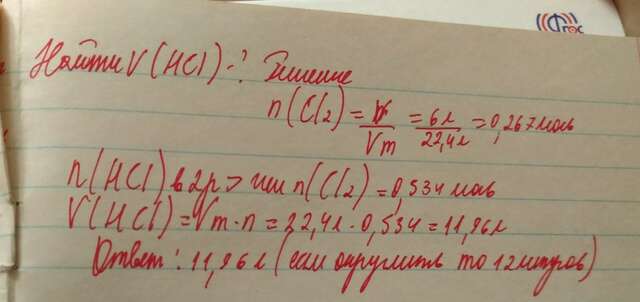 ФГОС
Найти V(HCl)-? Решение
n(Cl₂) = V/Vm = 6л/22,4л = 0,267моль
n(HCl) в 2р > чем n(Cl₂) = 0,534 моль
V(HCl) = Vm·n = 22,4л · 0,534 = 11,96л
Ответ: 11,96л (если округлить то 12литров)